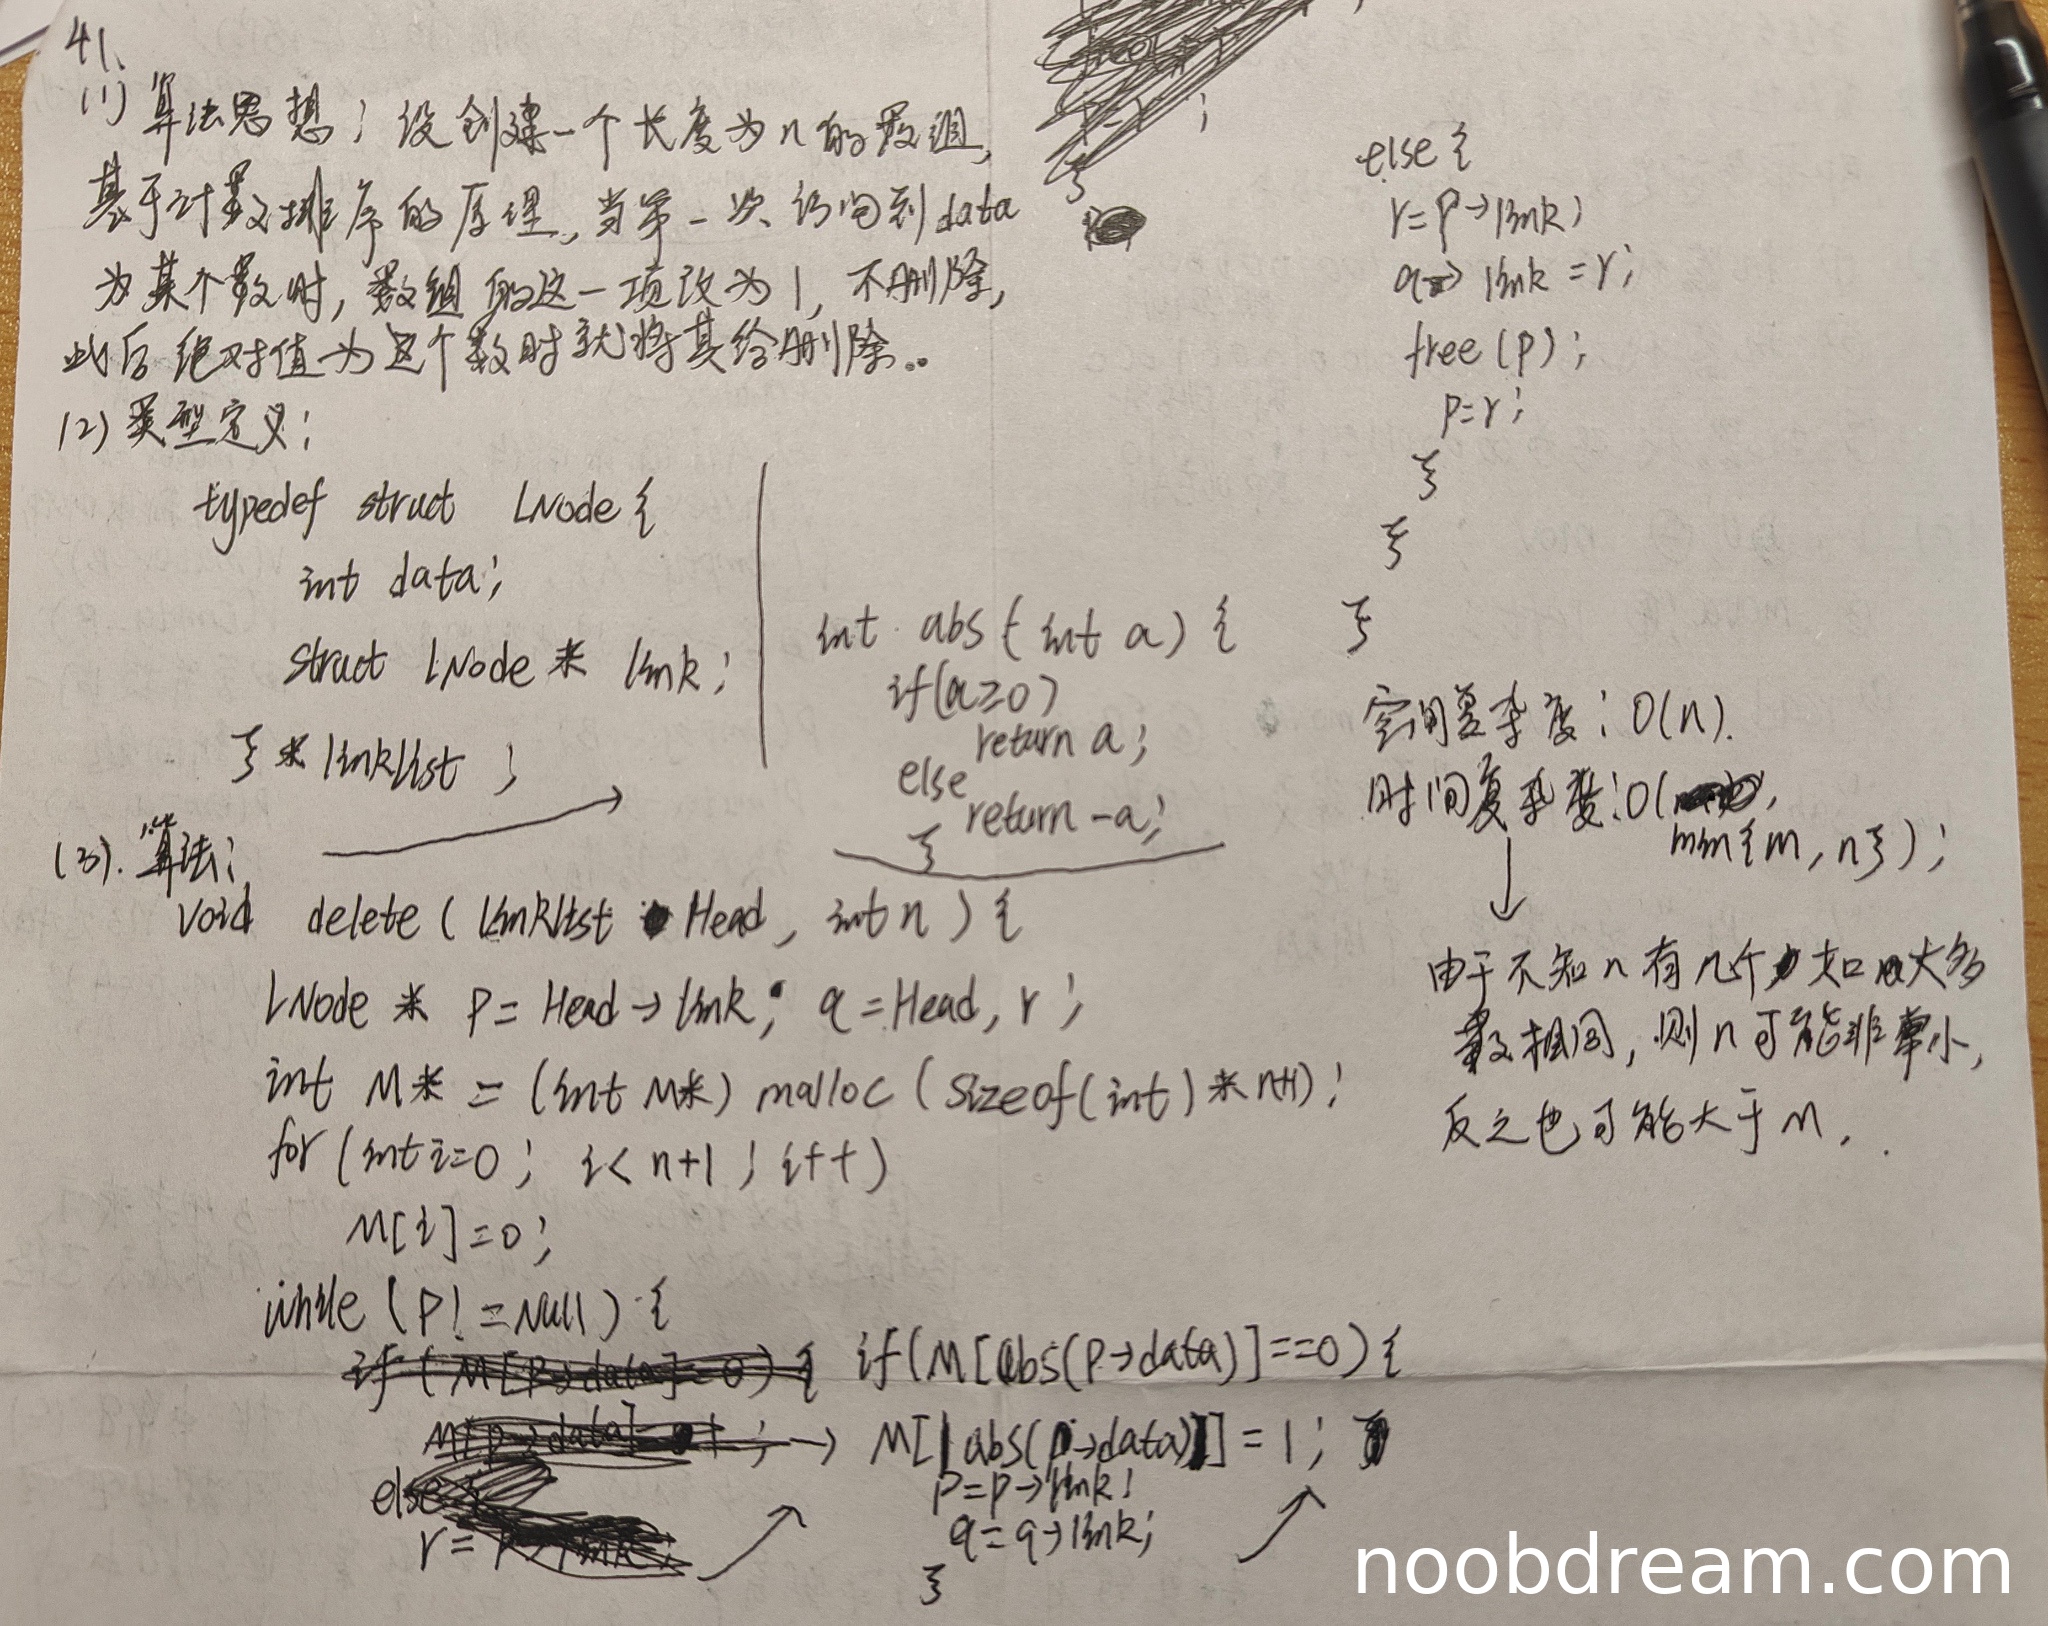 41、
(1) 算法思想：设创建一个长度为n的数组,
基于计数排序的原理,当第一次访问到data
为某个数时,数组的这一项改为1,不删除,
此后绝对值为这个数时就将其给删除..
(2) 类型定义:
typedef struct LNode {
int data;
struct LNode * link;
} * linklist ;
int abs (int a) {
if(a≥0)
return a;
else
return -a;
}
(3). 算法:
void delete ( linklist Head, int n ) {
LNode * p = Head → link; q = Head, r ;
int M* = (int M*) malloc ( sizeof(int) * n+1) ;
for (int i=0 ; i < n+1 ; i++)
M[i] = 0 ;
while ( p! = Null ) {
if (M[abs(p→data)] ==0) {
M[abs(p→data)] = 1 ;
p=p→link;
q=q→link;
}
else {
r = p→link;
q→ link = r;
free (p) ;
p=r ;
}
}
}
空间复杂度：O(n).
时间复杂度:O(
min{m, n}) ;
由于不知n有几个,如大多
数相同,则n可能非常小,
反之也可能大于m.
noobdream.com